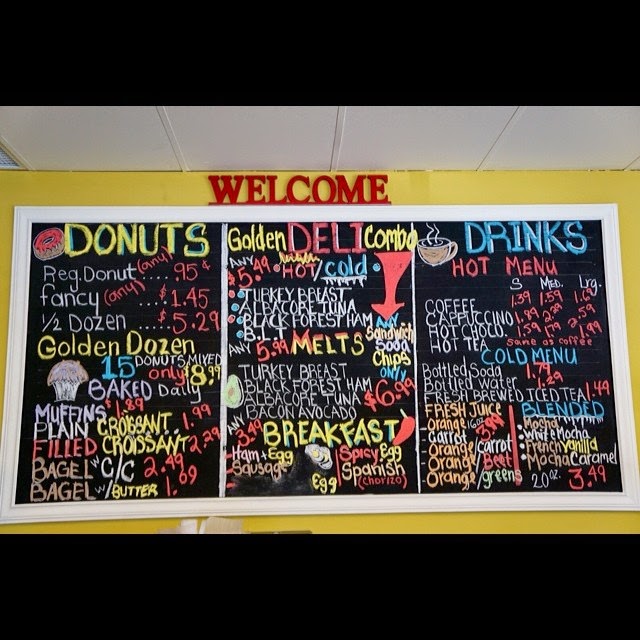 WELCOME
DONUTS
Reg. Donut (any) .95¢
fancy (any) ....$1.45
1/2 Dozen ....$5.29
Golden Dozen
15 DONUTS MIXED
only $8.99
BAKED Daily
MUFFINS $1.89
PLAIN CROISSANT. 1.99
FILLED CROISSANT 2.29
BAGEL w/ C/C 2.49
BAGEL w/BUTTER 1.69
Golden DELI Combo
ANY $5.49 HOT/Cold
TURKEY BREAST
ALBACORE TUNA
BLACK FOREST HAM
B.L.T.
ANY 5.99 MELTS
ANY Sandwich
Soda
Chips
ONLY
$6.99
TURKEY BREAST
BLACK FOREST HAM
ALBACORE TUNA
BACON AVOCADO
ANY 3.49 BREAKFAST
Ham + Egg
Sausage
Egg
Spicy Egg
Spanish
(chorizo)
DRINKS
HOT MENU
S Med. Lrg.
COFFEE 1.39 1.59 1.69
CAPPUCCINO 1.89 2.29 2.59
HOT CHOCO. 1.59 1.99
HOT TEA same as coffee
COLD MENU
Bottled Soda 1.79
Bottled Water 1.29
FRESH BREWED ICED TEA 1.49
FRESH JUICE
- Orange 16oz
- Carrot 5.99
- Orange/carrot
- Orange/Beet
- Orange/greens
BLENDED
• Mocha
• White Mocha
• French Vanilla
• Mocha Caramel
20 oz. 3.49